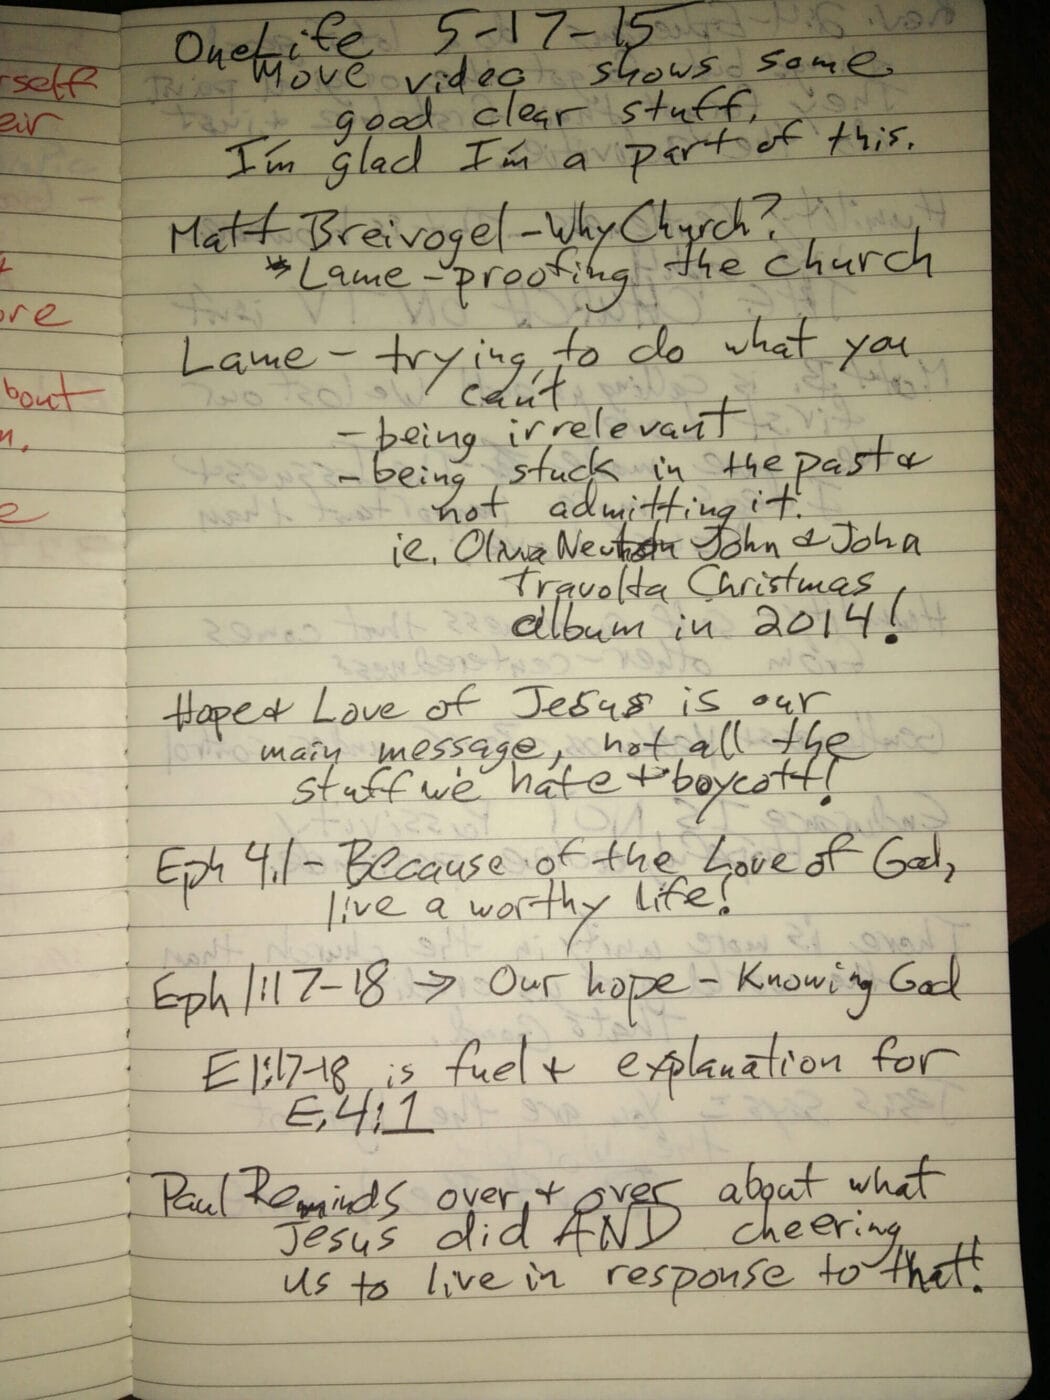 OneLife 5-17-15
Move video shows some
good clear stuff.
I'm glad I'm a part of this.
Matt Breivogel - Why Church?
* Lame - proofing the church
Lame - trying to do what you
can't
- being irrelevant
- being stuck in the past &
not admitting it.
ie. Olivia Newton John & John
Travolta Christmas
album in 2014!
Hope & Love of Jesus is our
main message, not all the
stuff we hate + boycott!
Eph 4:1 - Because of the Love of God,
live a worthy life!
Eph 1:17-18 → Our hope - Knowing God
E 1:17-18 is fuel + explanation for
E, 4:1
Paul Reminds over + over about what
Jesus did AND cheering
us to live in response to that!
rself
eir
ore
bout
n,
e